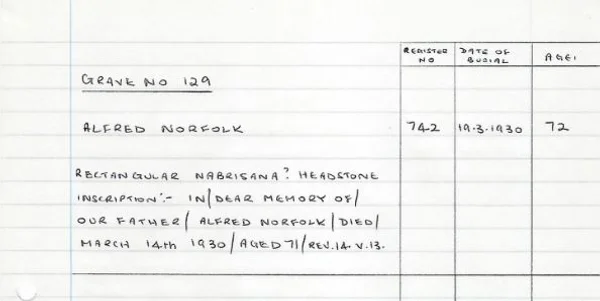 REGISTER NO
DATE OF BURIAL
AGE:
GRAVE NO 129
ALFRED NORFOLK 742 19.3.1930 72
RECTANGULAR NABRISANA? HEADSTONE
INSCRIPTION:- IN/DEAR MEMORY OF/
OUR FATHER/ ALFRED NORFOLK/DIED/
MARCH 14th 1930/AGED 71/REV.14.V.13.